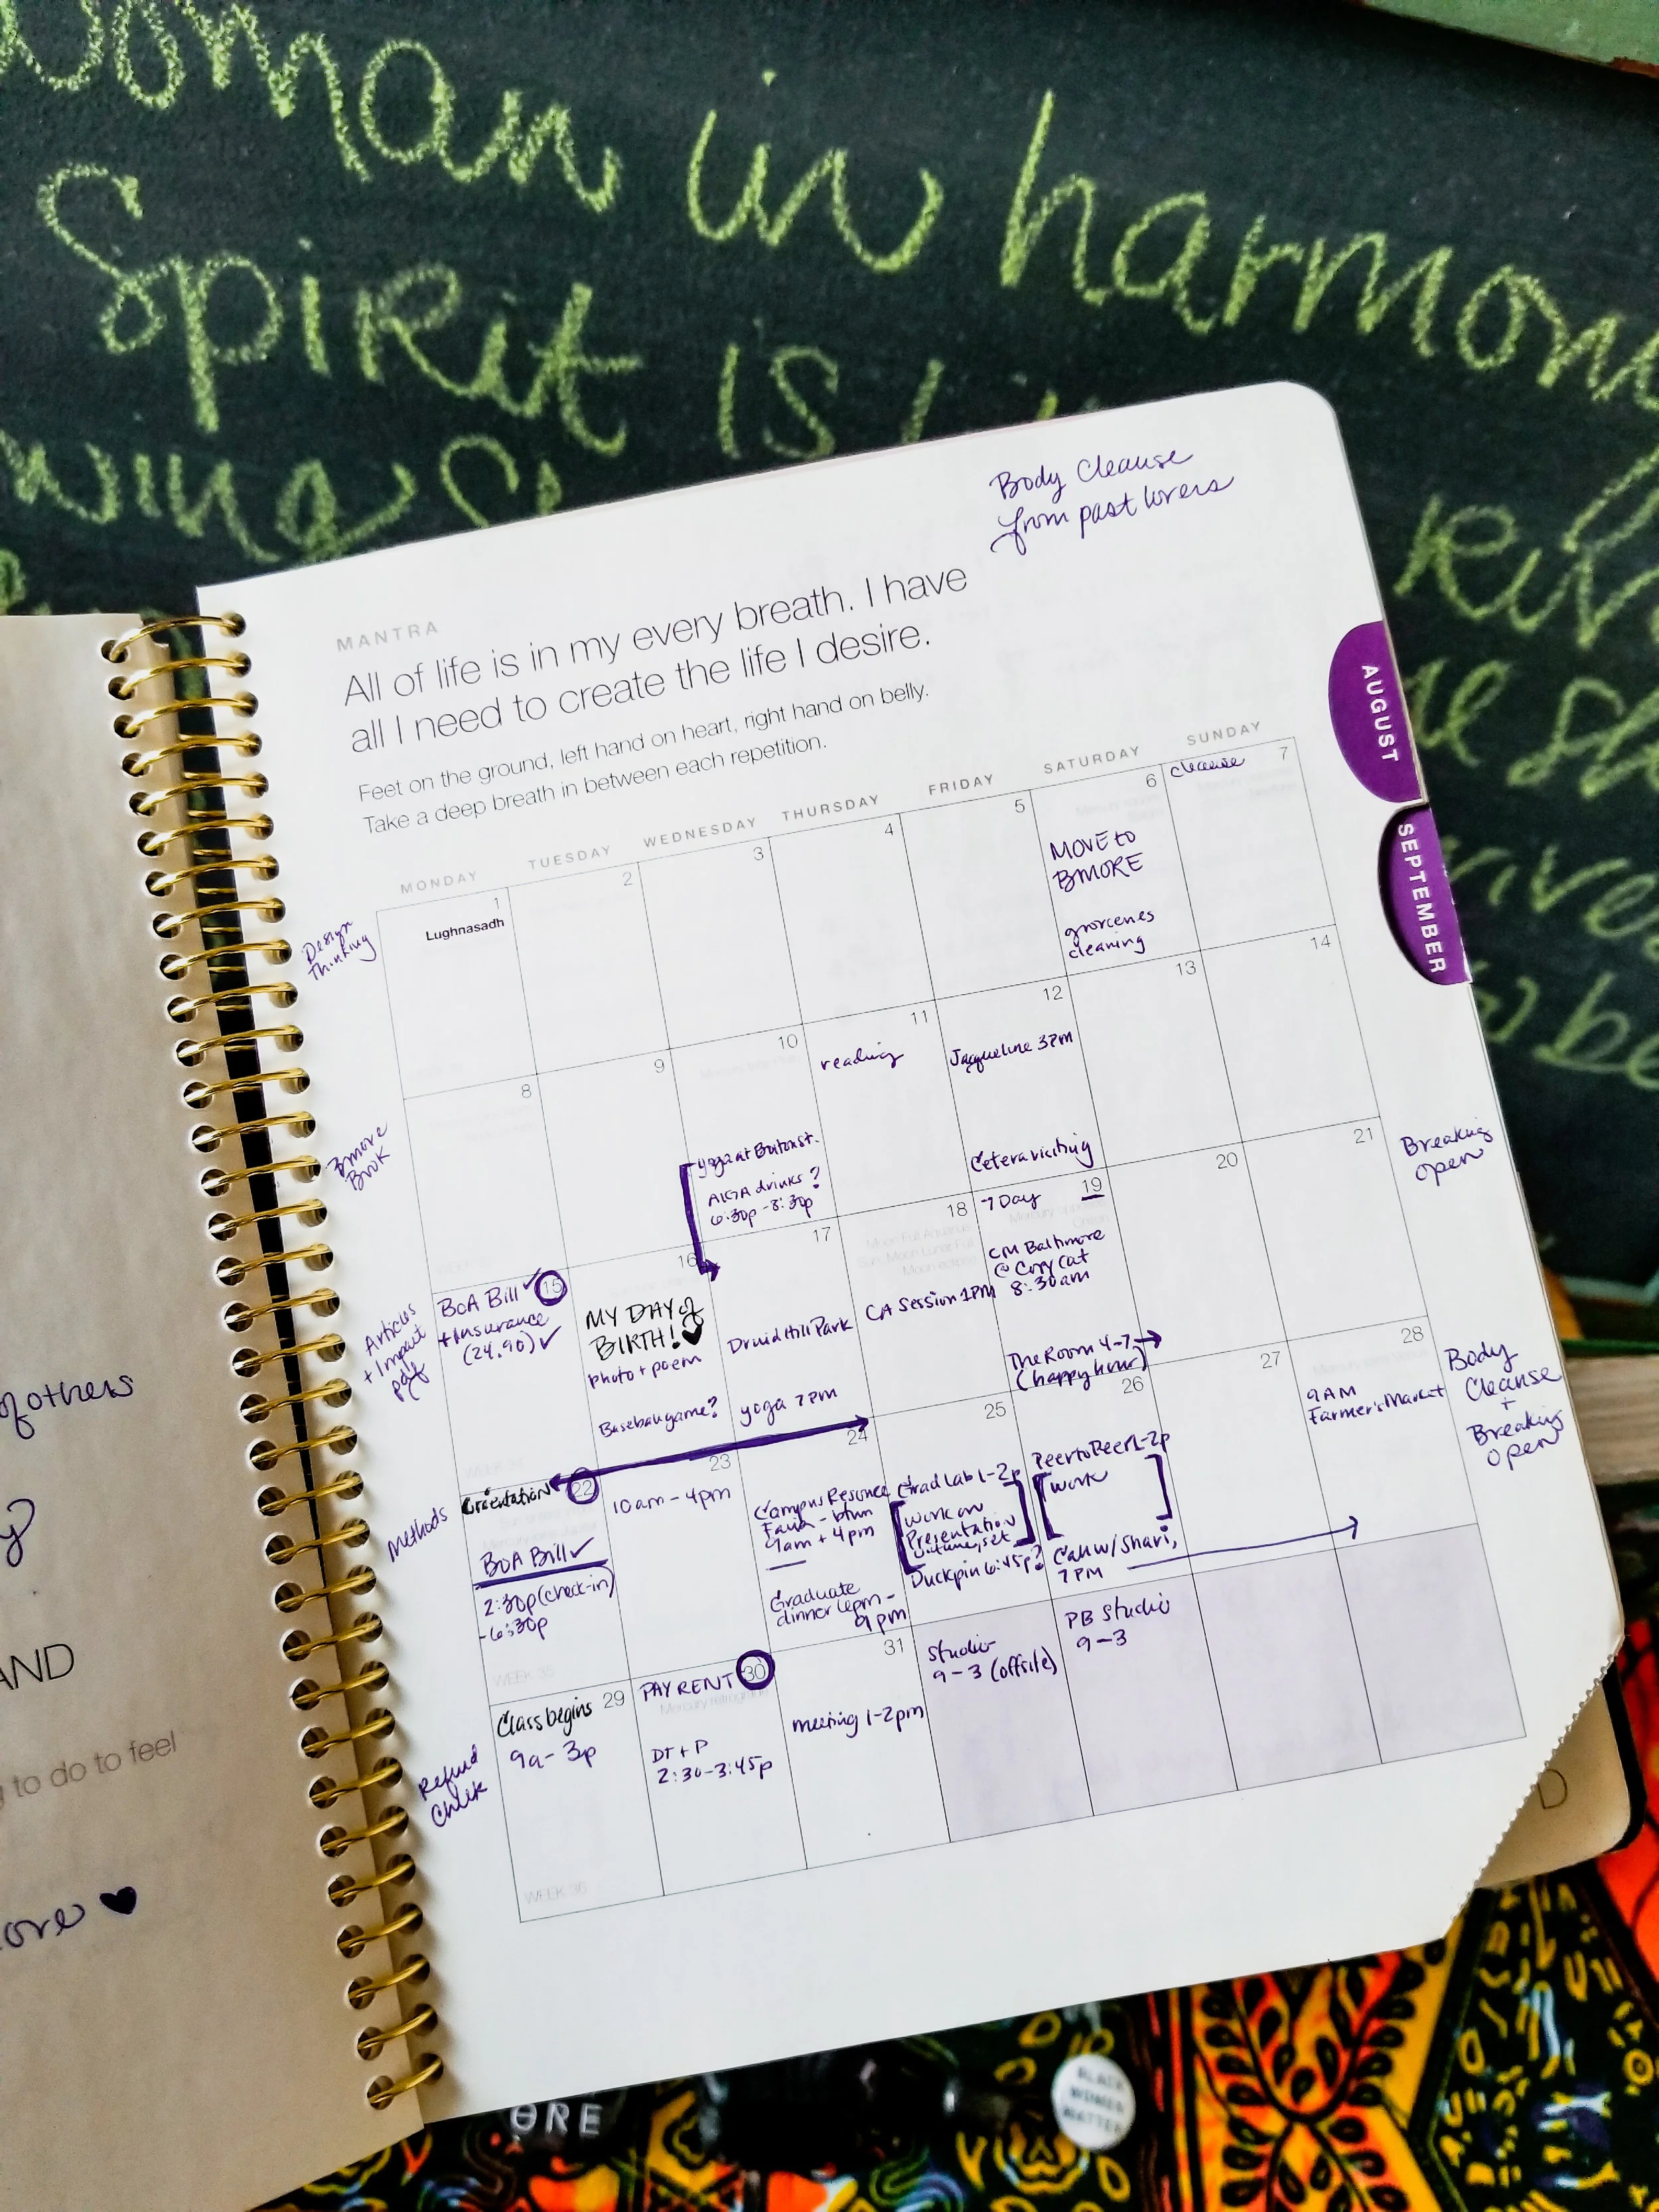 woman in harmony
Spirit is
wing
Body Cleanse
from past lovers
MANTRA
All of life is in my every breath. I have
all I need to create the life I desire.
Feet on the ground, left hand on heart, right hand on belly.
Take a deep breath in between each repetition.
AUGUST
SEPTEMBER
MONDAY
TUESDAY
WEDNESDAY
THURSDAY
FRIDAY
SATURDAY
SUNDAY
Design
Thinking
1
Lughnasadh
2
3
4
5
6
MOVE to
BMORE
groceries
cleaning
7
cleanse
Bmore
Book
8
9
10
yoga at Burton st.
AIGA drinks?
6:30p-8:30p
11
reading
12
Jacqueline 3PM
Cetera visiting
13
14
Breaking
Open
Articles
+ Impact
pdf
15
BoA Bill ✓
+ Insurance
(24.90) ✓
WEEK 34
16
MY DAY of
BIRTH! ♥
photo + poem
Baseball game?
17
Druid Hill Park
yoga 7PM
18
CA Session 1PM
19
-7 Day
CM Baltimore
@ Copy Cat
8:30am
The Room 4-7
(happy hour)
20
21
Body
Cleanse
+
Breaking
Open
Methods
22
Orientation
BOA Bill ✓
2:30p (check-in)
-6:30p
WEEK 35
23
10am-4pm
24
Campus Resource
Fair - btwn
9am + 4pm
Graduate
dinner 6pm-
9pm
25
Grad Lab 1-2p
[work on
Presentation
Duckpin 6:45p?
26
Peer to Peer 1-2p
[work]
Call w/ Shari,
7PM
27
28
9AM
Farmer's Market
Refund
Check
29
Class begins
9a-3p
WEEK 36
30
PAY RENT
Mercury retrograde
DT + P
2:30-3:45p
31
meeting 1-2pm
Studio
9-3 (offsite)
PB Studio
9-3
of others
AND
to do to feel
ore ♥
ORE
BLACK
WOMEN
MATTER